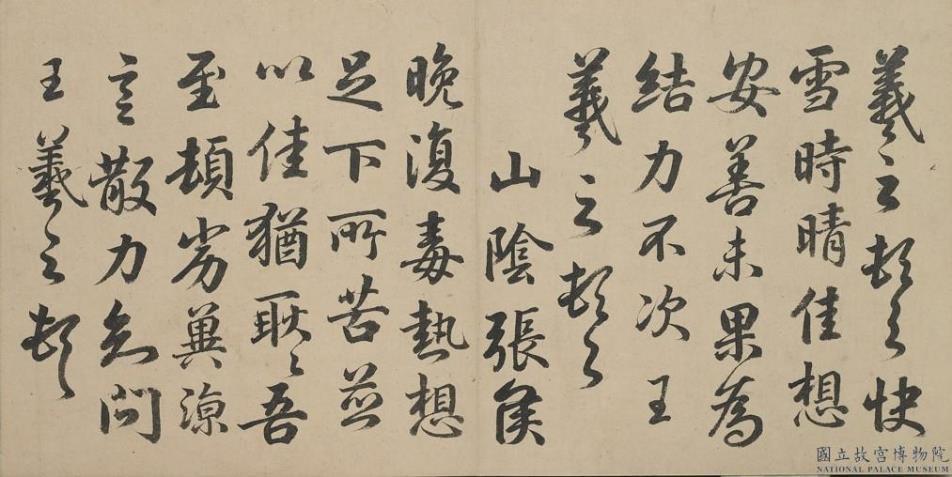 羲之頓首快
雪時晴佳想
安善未果為
結力不次王
羲之頓首
山陰張侯
晚復毒熱想
足下所苦並
以佳猶耿〻吾
至頓劣冀涼
言散力知問
王羲之頓首
國立故宮博物院
NATIONAL PALACE MUSEUM